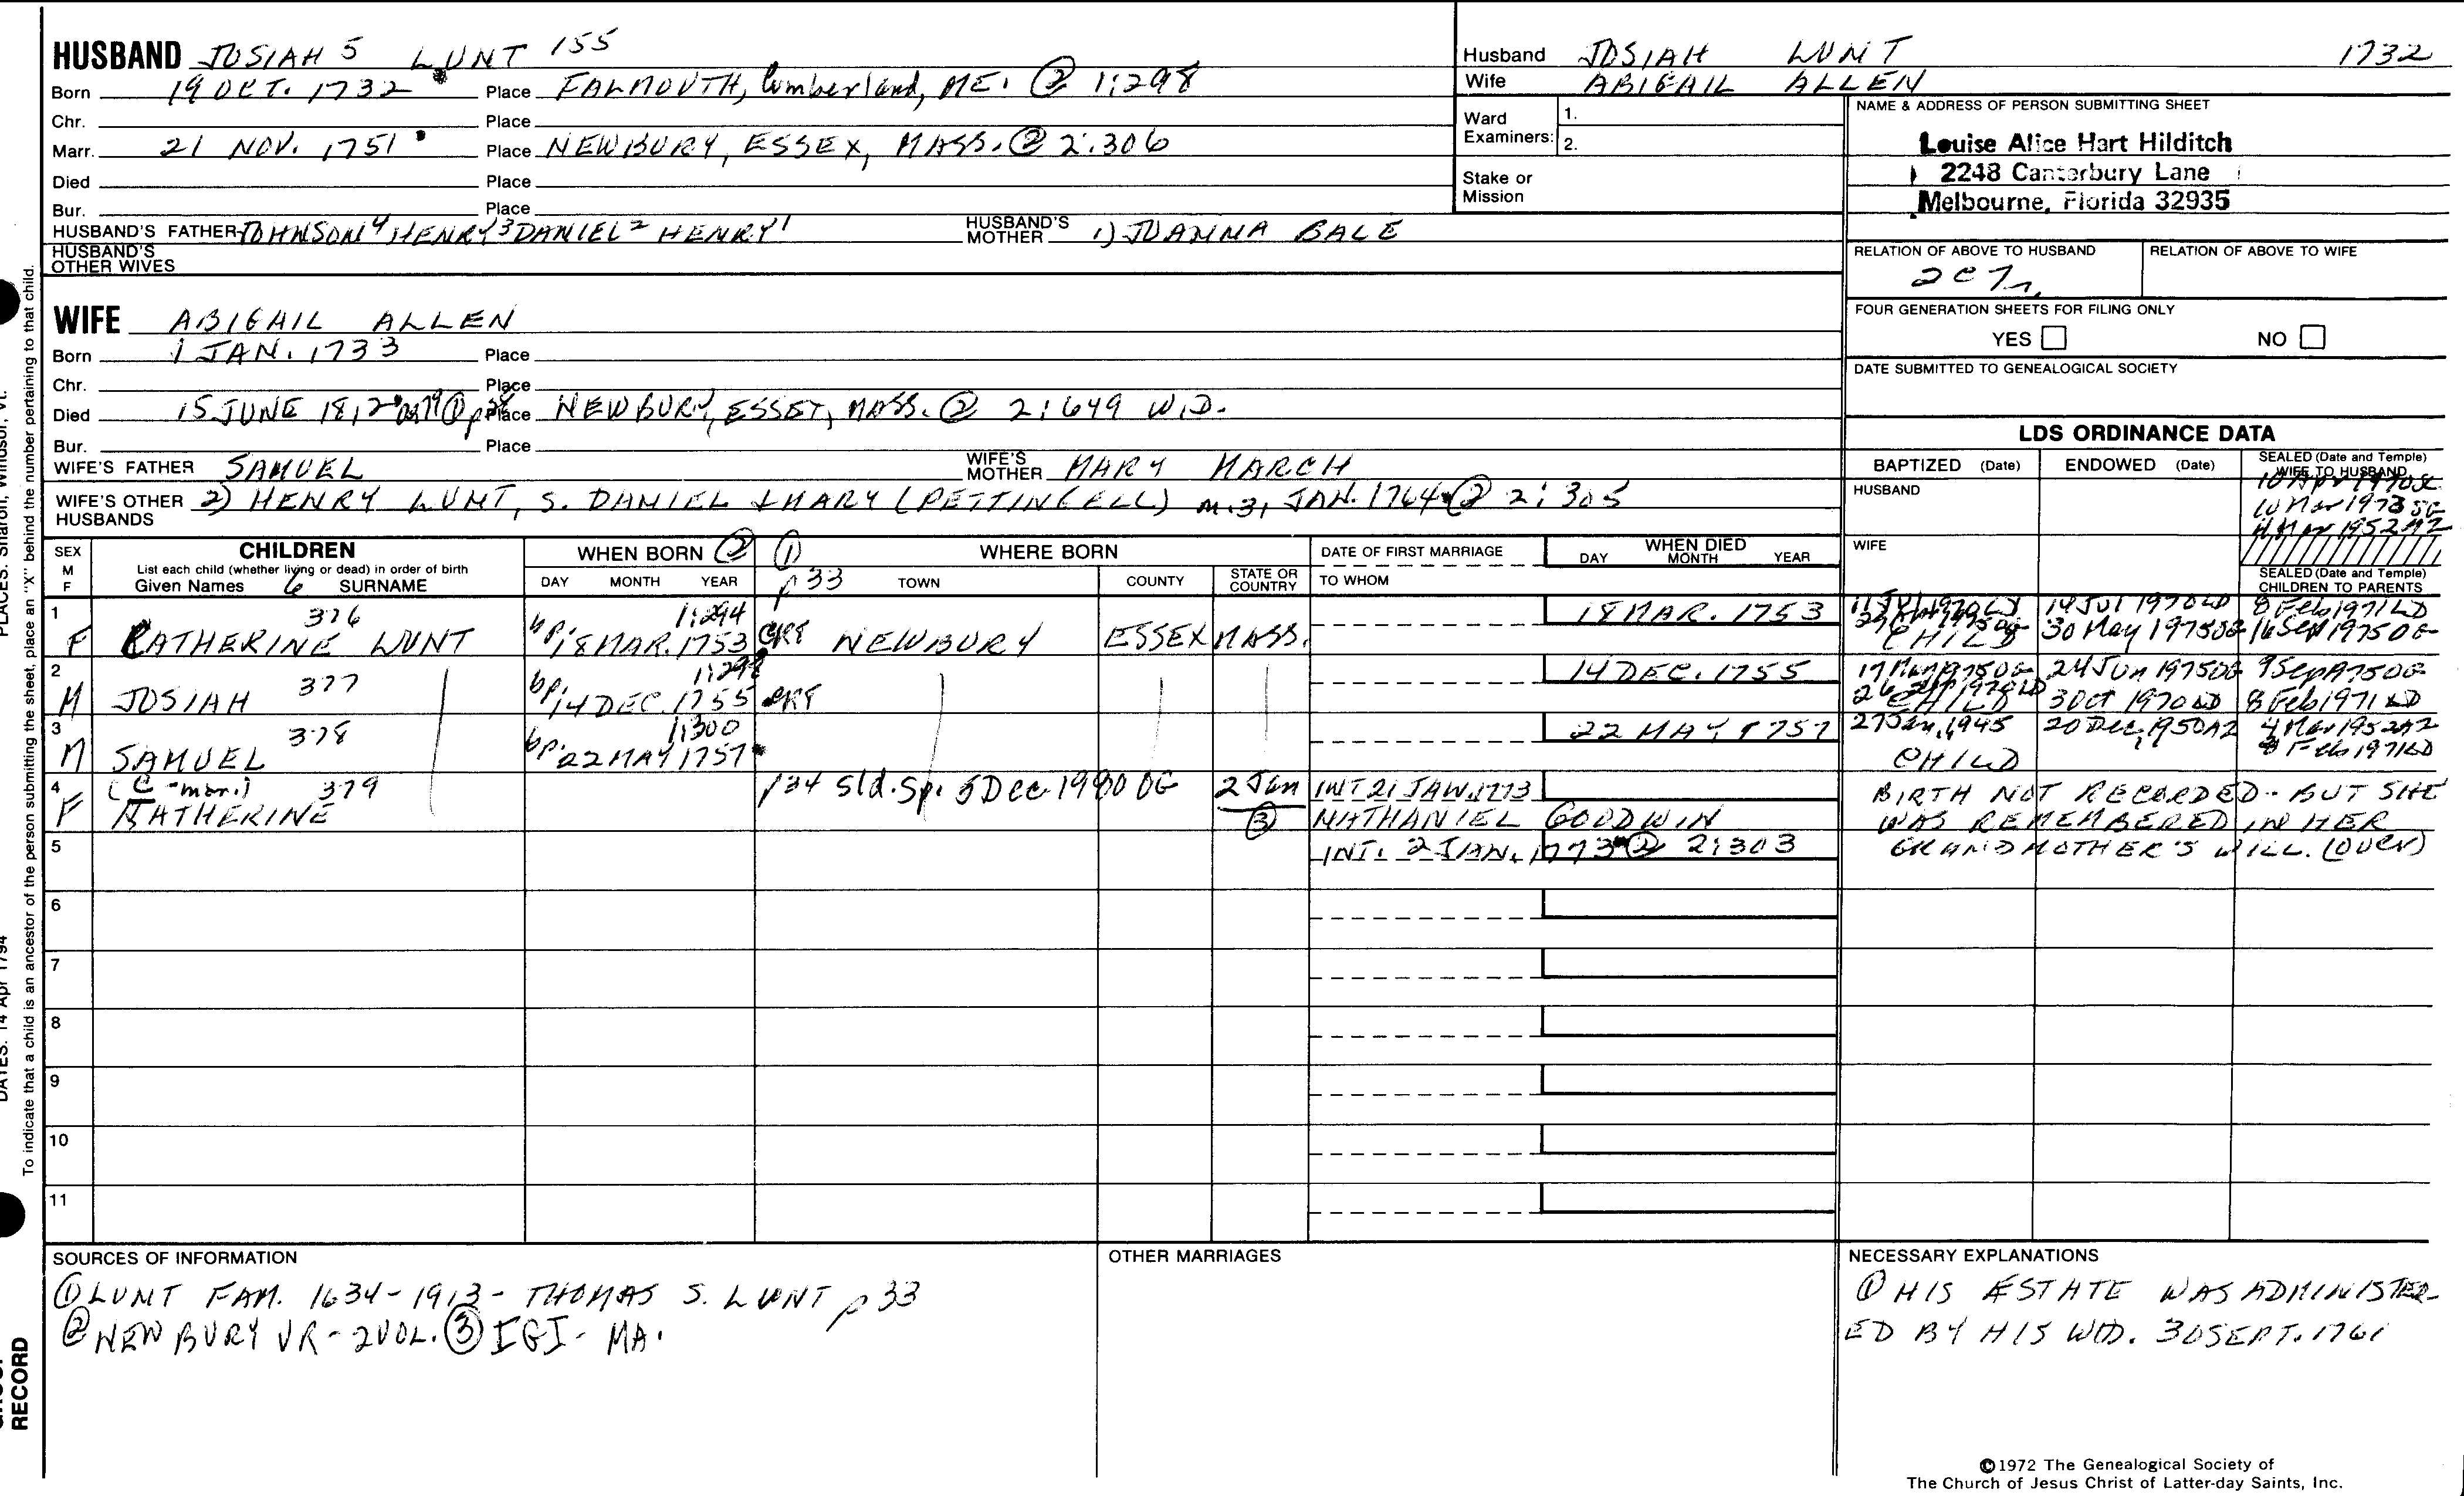 HUSBAND JOSIAH 5 LUNT 155
Born 19 OCT. 1732 Place FALMOUTH, Cumberland, ME. @ 1:298
Chr. Place
Marr. 21 NOV. 1751 Place NEWBURY, ESSEX, MASS. @ 2:306
Died Place
Bur. Place
HUSBAND'S FATHER JOHNSON 4 HENRY 3 DANIEL 2 HENRY 1 HUSBAND'S MOTHER 1) JOANNA BALE
HUSBAND'S OTHER WIVES
WIFE ABIGAIL ALLEN
Born 1 JAN. 1733 Place
Chr. Place
Died 15 JUNE 1812 Place NEWBURY, ESSET, MASS. @ 2:649 WID.
Bur. Place
WIFE'S FATHER SAMUEL WIFE'S MOTHER MARY MARCH
WIFE'S OTHER HUSBANDS 2) HENRY LUNT, S. DANIEL & MARY (PETTINGELL) m. 31 JAN. 1764 @ 2:305
Husband JOSIAH LUNT 1732
Wife ABIGAIL ALLEN
Ward Examiners: 1.
2.
Stake or Mission
NAME & ADDRESS OF PERSON SUBMITTING SHEET
Louise Alice Hart Hilditch
2248 Canterbury Lane
Melbourne, Florida 32935
RELATION OF ABOVE TO HUSBAND RELATION OF ABOVE TO WIFE
2C7r.
FOUR GENERATION SHEETS FOR FILING ONLY
YES NO
DATE SUBMITTED TO GENEALOGICAL SOCIETY
LDS ORDINANCE DATA
BAPTIZED (Date) ENDOWED (Date) SEALED (Date and Temple) WIFE TO HUSBAND
HUSBAND 10 Apr 1970 SL
10 Mar 1973 SG
4 Mar 1952 AZ
WIFE
SEALED (Date and Temple) CHILDREN TO PARENTS
SEX M F CHILDREN WHEN BORN ② ① WHERE BORN DATE OF FIRST MARRIAGE WHEN DIED
List each child (whether living or dead) in order of birth
Given Names SURNAME DAY MONTH YEAR p 33 TOWN COUNTY STATE OR COUNTRY TO WHOM DAY MONTH YEAR
1 376 1:294 18 MAR. 1753 14 Jul 1970 LD 8 Feb 1971 LD
F CATHERINE LUNT bp. 18 MAR. 1753 NEWBURY ESSEX MASS. CHILD 30 May 1975 OG 16 Sep 1975 OG
2 377 1:298 14 DEC. 1755 24 Jun 1975 OG 9 Sep 1975 OG
M JOSIAH bp. 14 DEC. 1755 CHILD 3 Oct 1970 LD 8 Feb 1971 LD
3 378 1:300 22 MAY 1757 27 Jan, 1945 20 Dec, 1950 AZ 4 Mar 1952 AZ
M SAMUEL bp. 22 MAY 1757 CHILD 8 Feb 1971 LD
4 (C - marr.) 379 p34 Sld. Sp. 5 Dec 1980 OG 2 Jan INT 21 JAN. 1773 BIRTH NOT RECORDED - BUT SHE
F KATHERINE ③ NATHANIEL GOODWIN WAS REMEMBERED IN HER
5 INT. 2 JAN. 1773 ② 2:303 GRANDMOTHER'S WILL. (OVER)
6
7
8
9
10
11
SOURCES OF INFORMATION
① LUNT FAM. 1634-1913 - THOMAS S. LUNT p 33
② NEWBURY VR - 2 VOL. ③ IGI - MA.
OTHER MARRIAGES
NECESSARY EXPLANATIONS
① HIS ESTATE WAS ADMINISTER-
ED BY HIS WID. 30 SEPT. 1761
©1972 The Genealogical Society of
The Church of Jesus Christ of Latter-day Saints, Inc.
To indicate that a child is an ancestor of the person submitting the sheet, place an "X" behind the number pertaining to that child.
PLACES: Sharon, Windsor, Vt.
DATES: 14 Apr 1794
RECORD